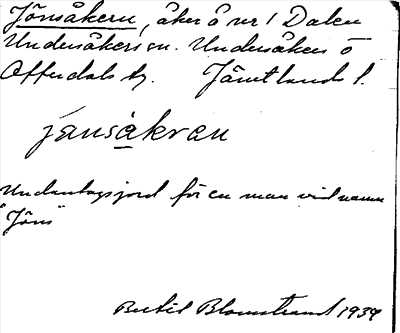 Jönsåkern, åker å nr 1 Dalen
Undersåkers sn. Undersåkers o
Offerdals tg. Jämtlands l.
jänsåkran
Undantagsjord för en man vid namn
"Jöns"
Bertil Blomstrand 1939